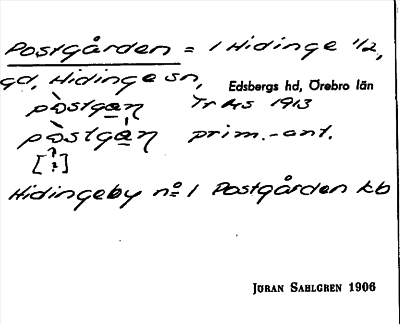 Postgården = 1 Hidinge 1/2,
gd, Hidinge sn, Edsbergs hd, Örebro län
pòstgan Tr ks 1913
pòstgán prim.-ant.
[??]
Hidingeby nº 1 Postgården kb
JÖRAN SAHLGREN 1906